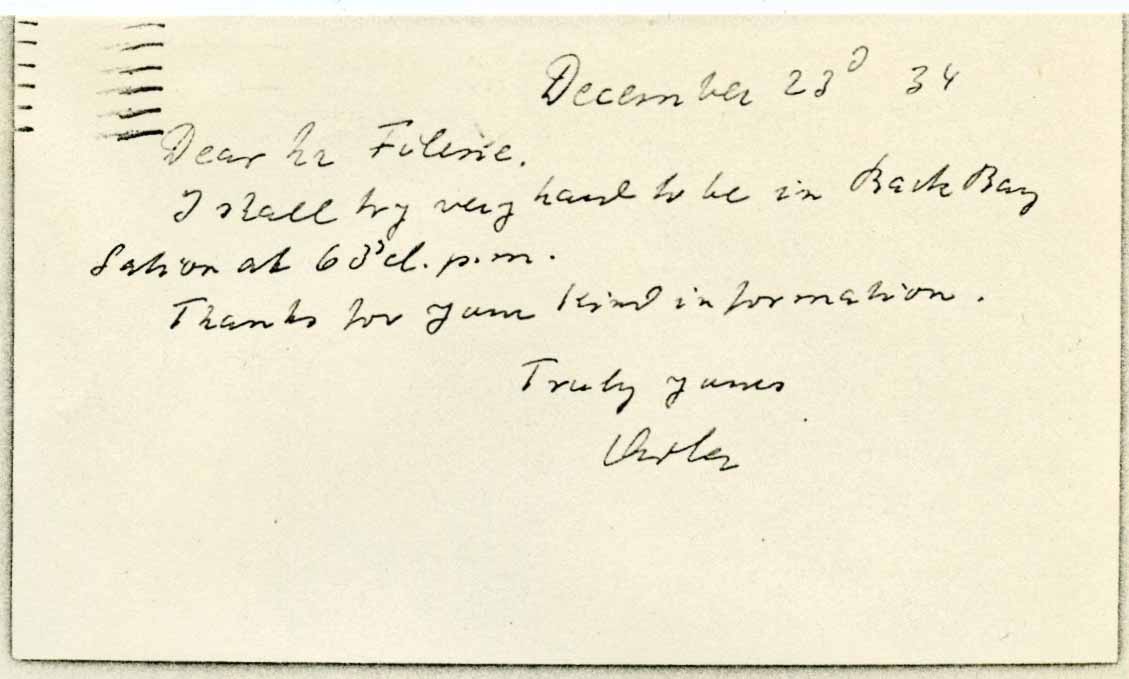 December 23d 34
Dear Mr Filene.
I shall try very hard to be in Back Bay
Sation at 63 cl. p.m.
Thanks for your kind information.
Truly yours